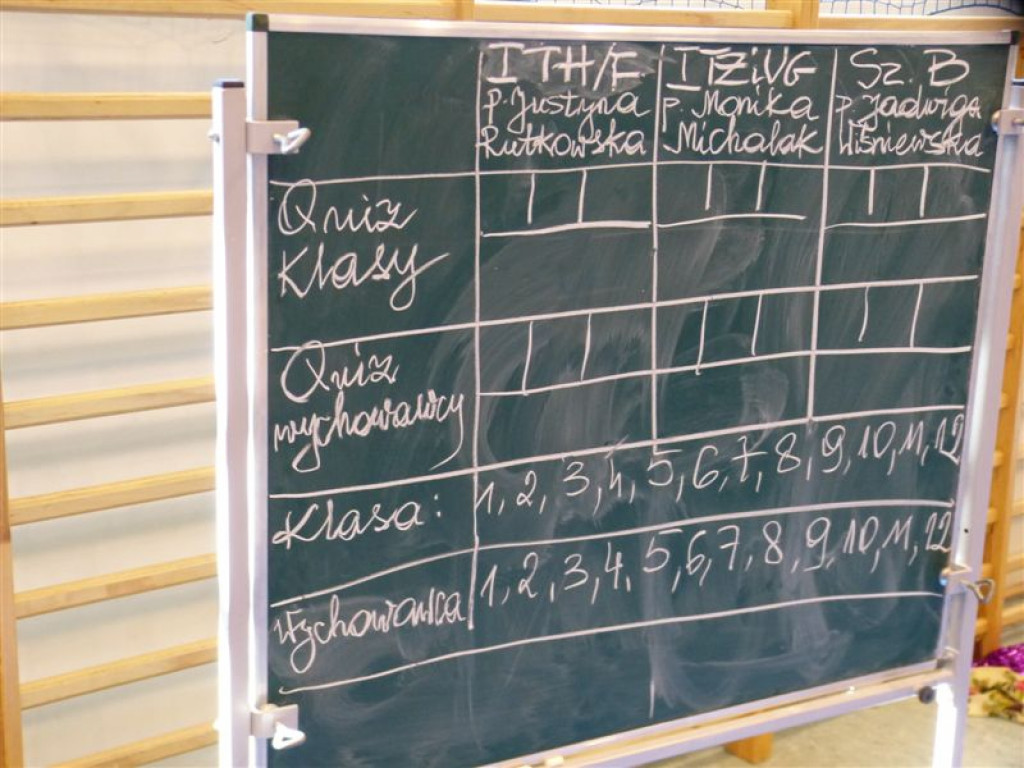 I TH/F I TŻiUG Sz. B
p. Justyna p. Monika p. Jadwiga
Rutkowska Michalak Wiśniewska
Quiz
Klasy
Quiz
wychowawcy
Klasa: 1, 2, 3, 4, 5, 6, 7, 8, 9, 10, 11, 12
Wychowawca 1, 2, 3, 4, 5, 6, 7, 8, 9, 10, 11, 12